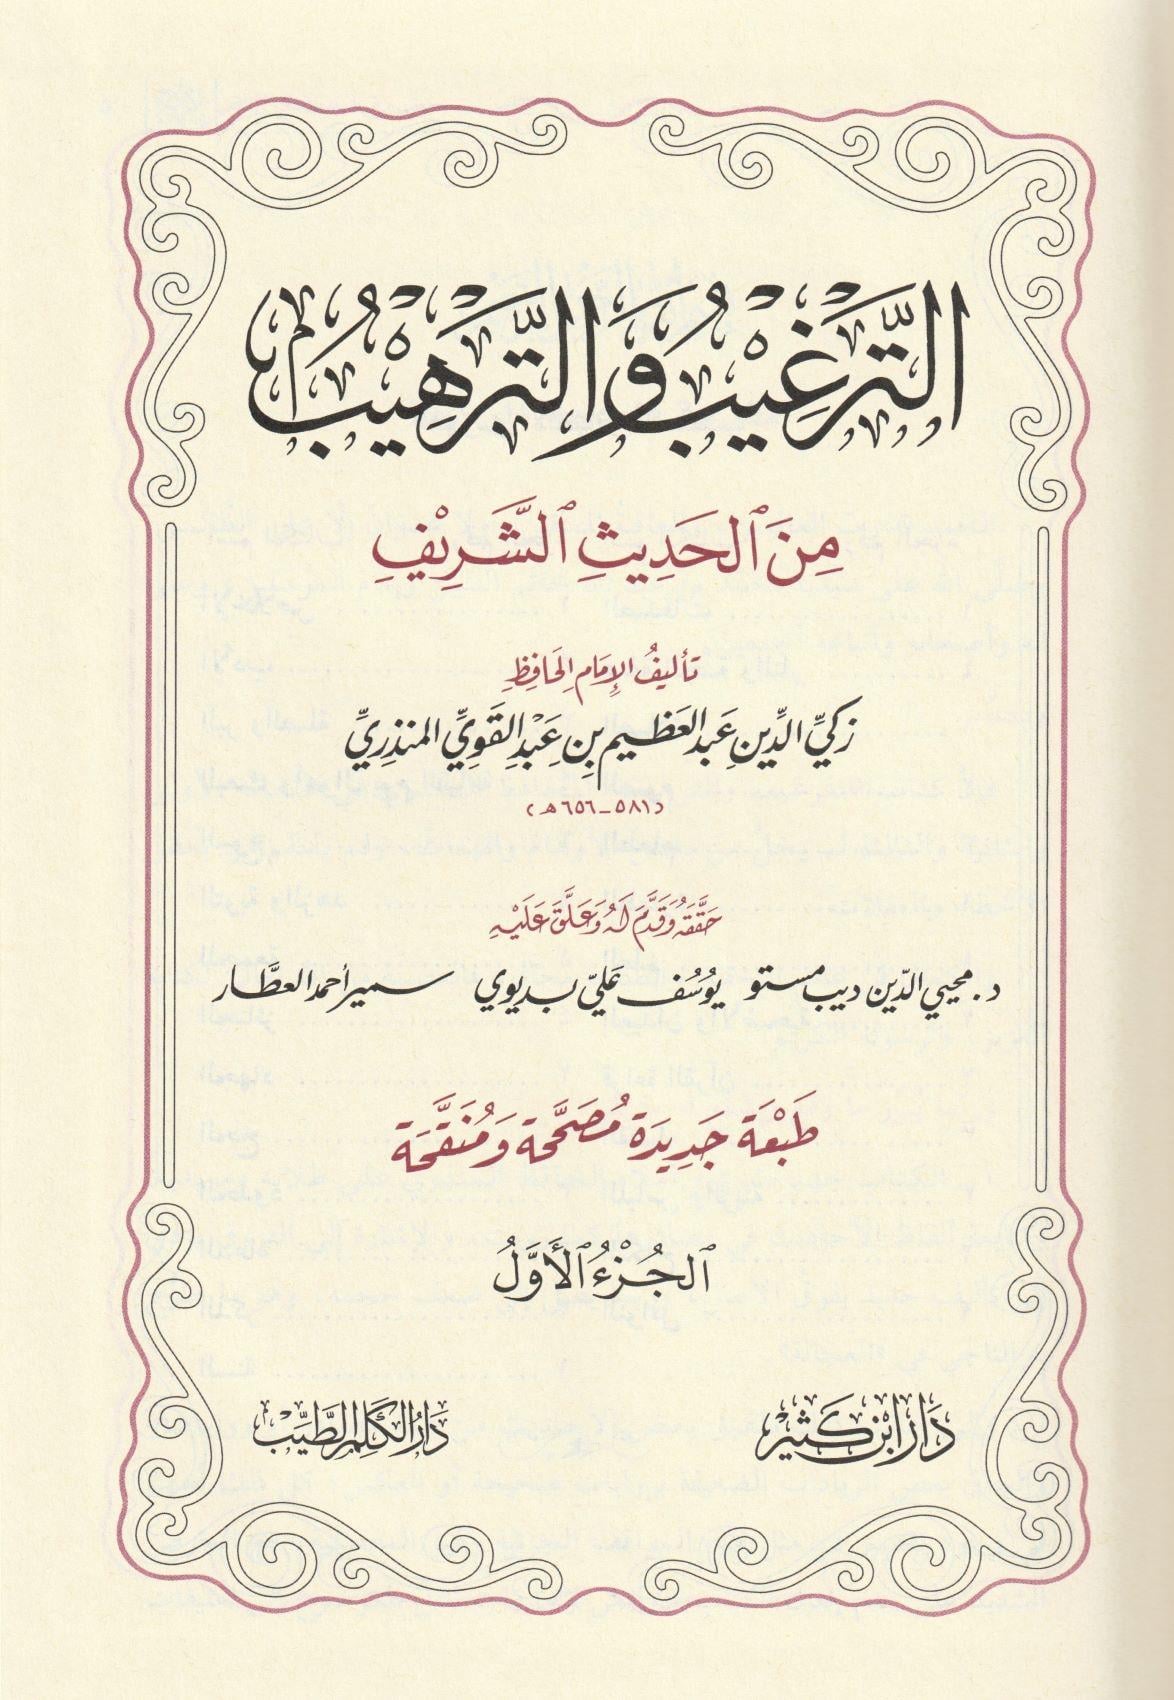 التَّرْغِيْبُ وَالتَّرْهِيْبُ
مِنَ ٱلْحَدِيثِ ٱلشَّرِيْفِ
تأليفُ الإِمَامِ الحَافِظِ
زَكيِّ الدِّينِ عَبدِ العَظيمِ بنِ عَبْدِ القَوِيِّ المنذِريِّ
(٥٨١ - ٦٥٦ هـ)
حَقَّقَهُ وَقَدَّمَ لَهُ وَعَلَّقَ عَلَيْهِ
د. محيي الدّين ديب مستو يُوسُف عَليّ بديوي سمير أحمد العطَّار
طَبْعَة جَدِيدَة مُصَحَّحَة وَمُنَقَّحَة
ٱلجُزْءُ ٱلأَوَّلُ
دَار ابْن كَثيْر
دَارُ الكَلِمِ الطَّيِّبْ